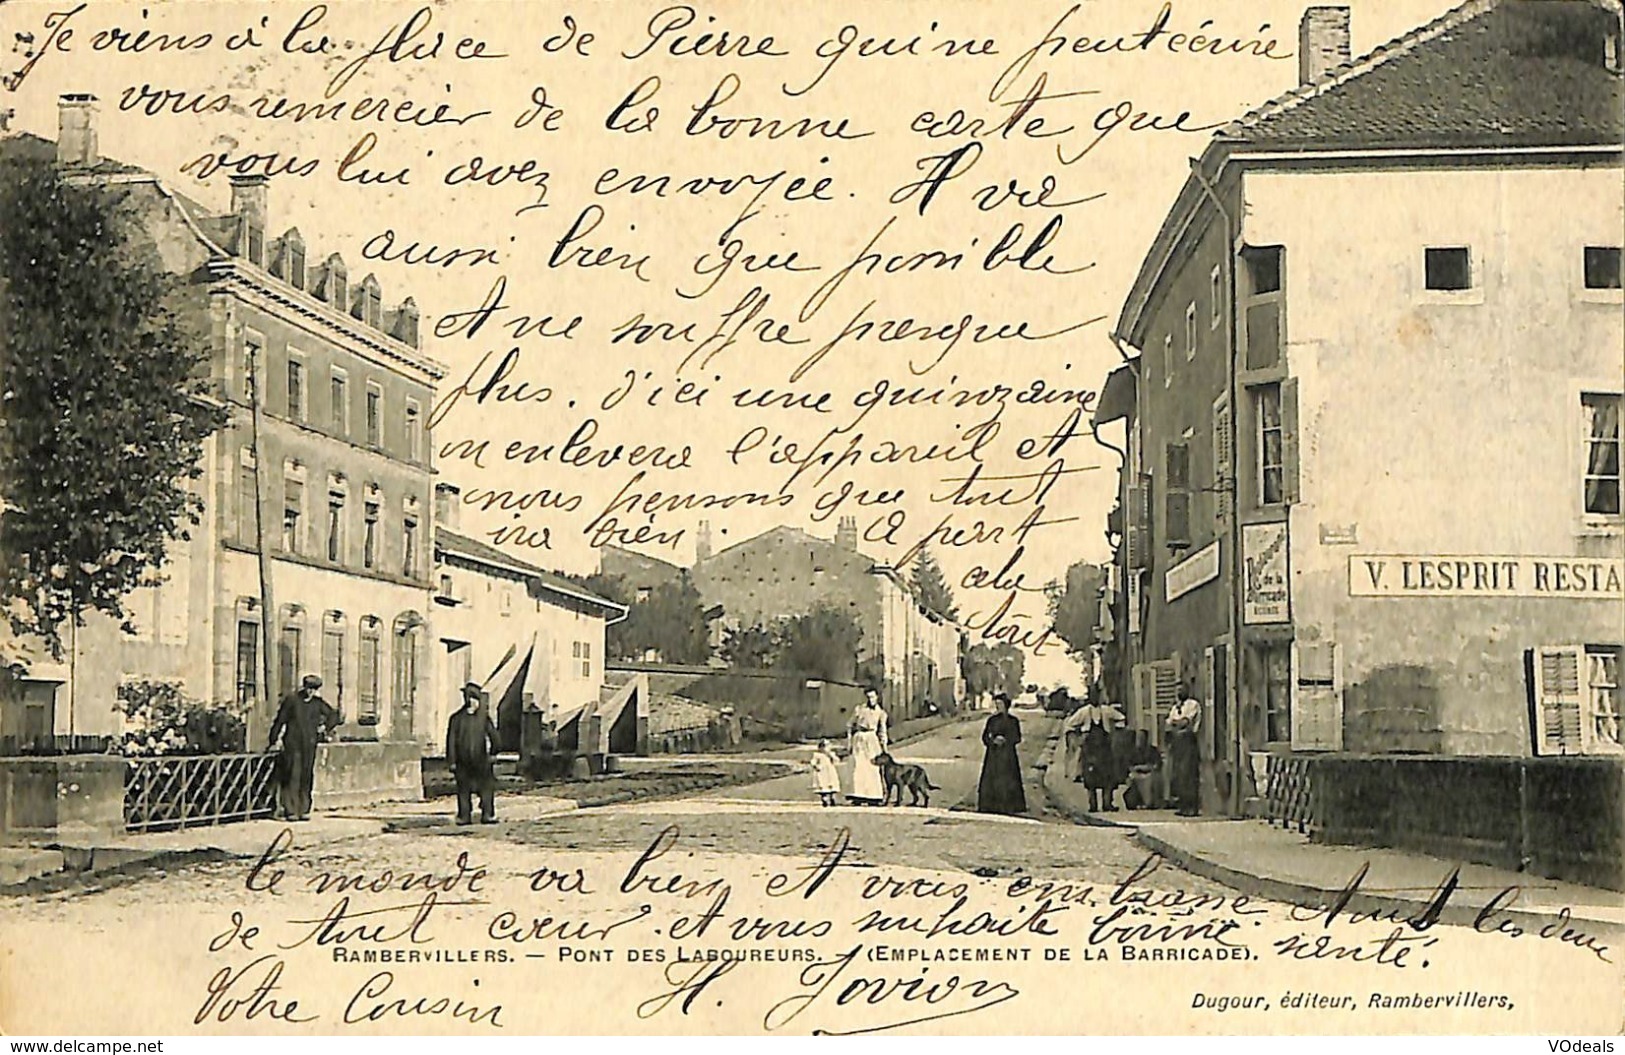 Je viens à la place de Pierre qui ne peut écrire
vous remercier de la bonne carte que
vous lui avez envoyée. Il va
aussi bien que possible
et ne souffre presque
plus. d'ici une quinzaine
on enlevera l'appareil et
nous pensons que tout
ira bien. A part
cela
tout
le monde va bien et vous embrasse tous les deux
de tout cœur et vous souhaite bonne santé.
Votre Cousin H. Jovion
RAMBERVILLERS. — PONT DES LABOUREURS. — (EMPLACEMENT DE LA BARRICADE).
Dugour, éditeur, Rambervillers,
V. LESPRIT RESTA
de la
Barricade
www.delcampe.net
VOdeals